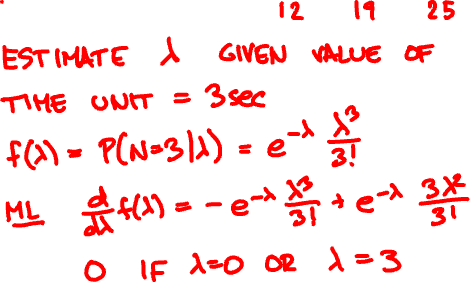 12 19 25
ESTIMATE λ GIVEN VALUE OF
TIME UNIT = 3 sec
f(λ) = P(N=3|λ) = e^{-λ} λ^3/3!
ML d/dλ f(λ) = - e^{-λ} λ^3/3! + e^{-λ} 3λ^2/3!
0 IF λ=0 OR λ=3